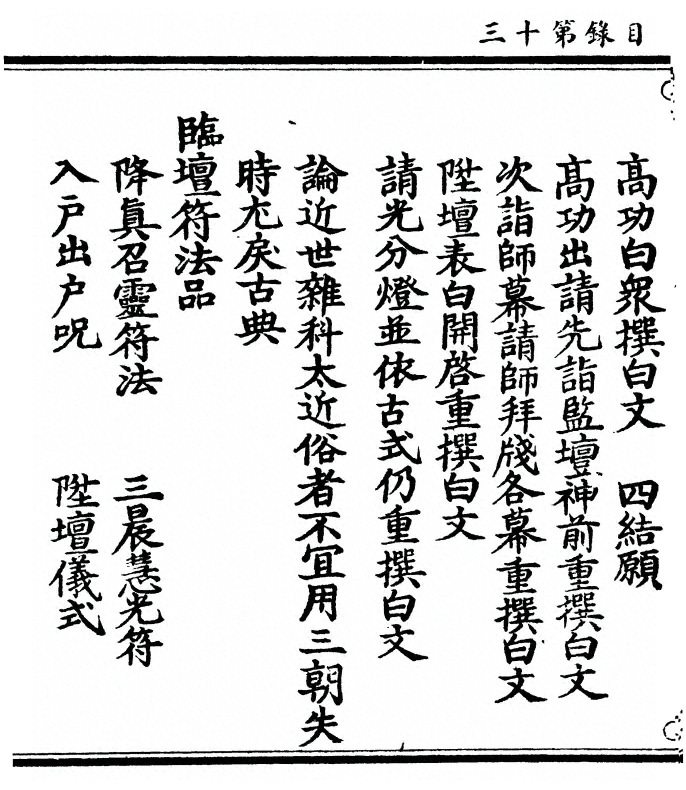 目錄第十三
高功白衆撰白文　四結願
高功出請先詣監壇神前重撰白文
次詣師幕請師拜牋各幕重撰白文
陞壇表白開啓重撰白文
請光分燈並依古式仍重撰白文
論近世雜科太近俗者不冝用三朝失
時尤戾古典
臨壇符法品
降眞召靈符法　三晨慧光符
入戶出戶呪　陞壇儀式